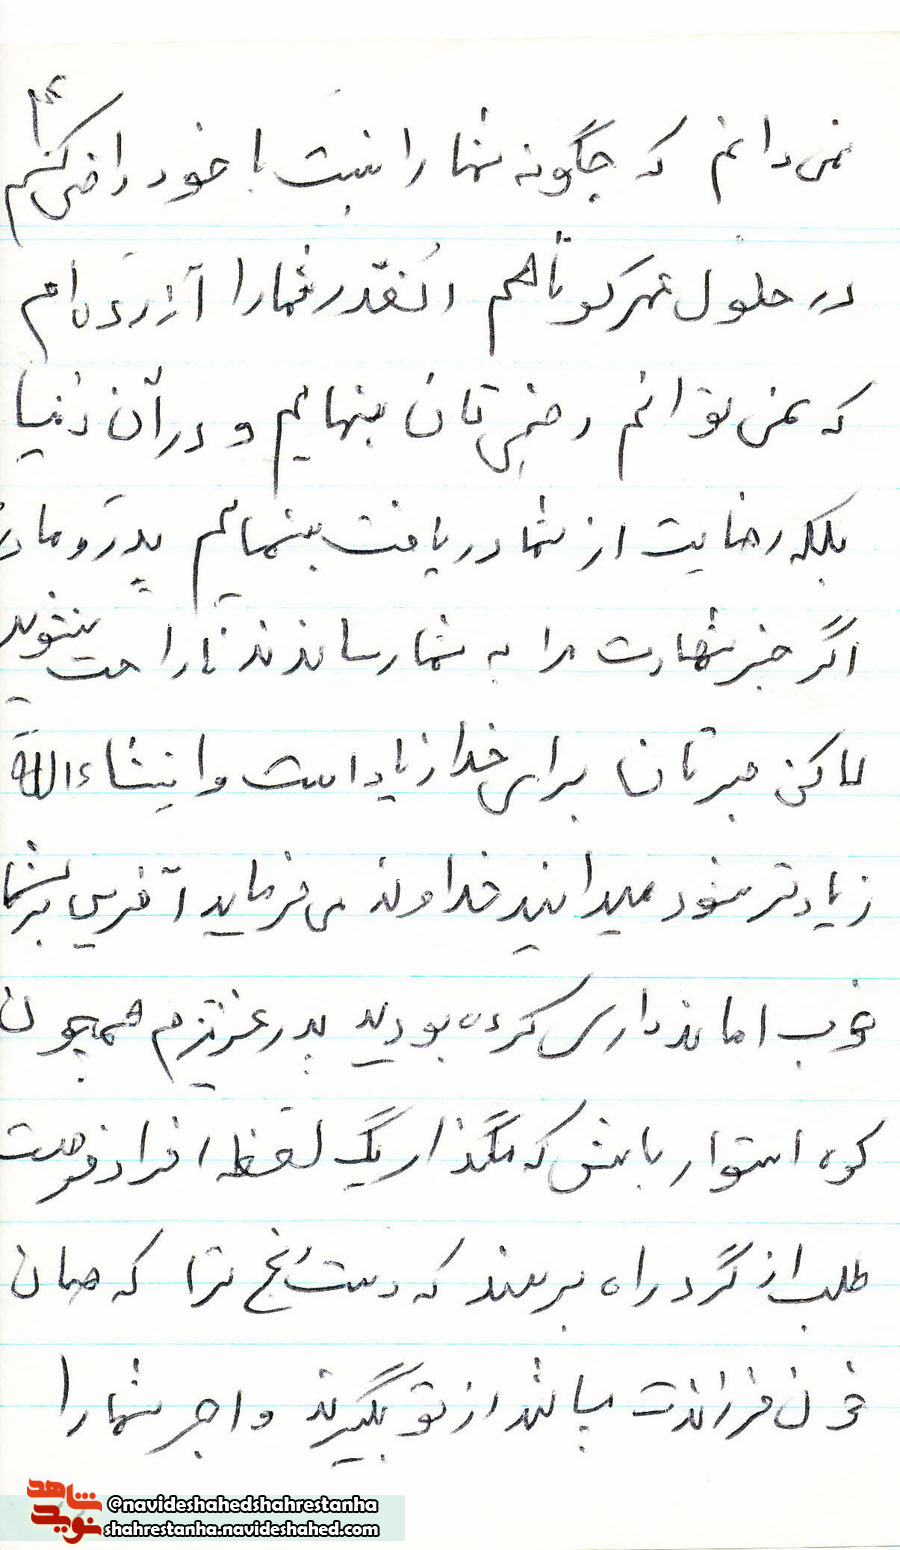 نمی دانم که چگونه شما را نسبت با خود راضی کنم
در طول عمر کوتاهم آنقدر شما را آزار داده ام
که نمی توانم راضی تان بنمایم و در آن دنیا
بلکه رضایت از شما دریافت بنمایم پدر و مادر
اگر خبر شهادت مرا به شما رساندند ناراحت نشوید
لاکن صبرتان برای خدا زیاد است و انشاءالله
زیادتر شود میدانید خداوند می فرماید آفرین بر شما
خوب امانتداری کرده بودید پدر عزیزم همچون
کوه استوار باش که مگذار یک لحظه افراد فرصت
طلب از گرد راه برسند که دست رنج ترا که همان
خون فرزندت میباشد از تو بگیرند و اجر شما را
شاهد
نوید
@navideshahedshahrestanha
shahrestanha.navideshahed.com